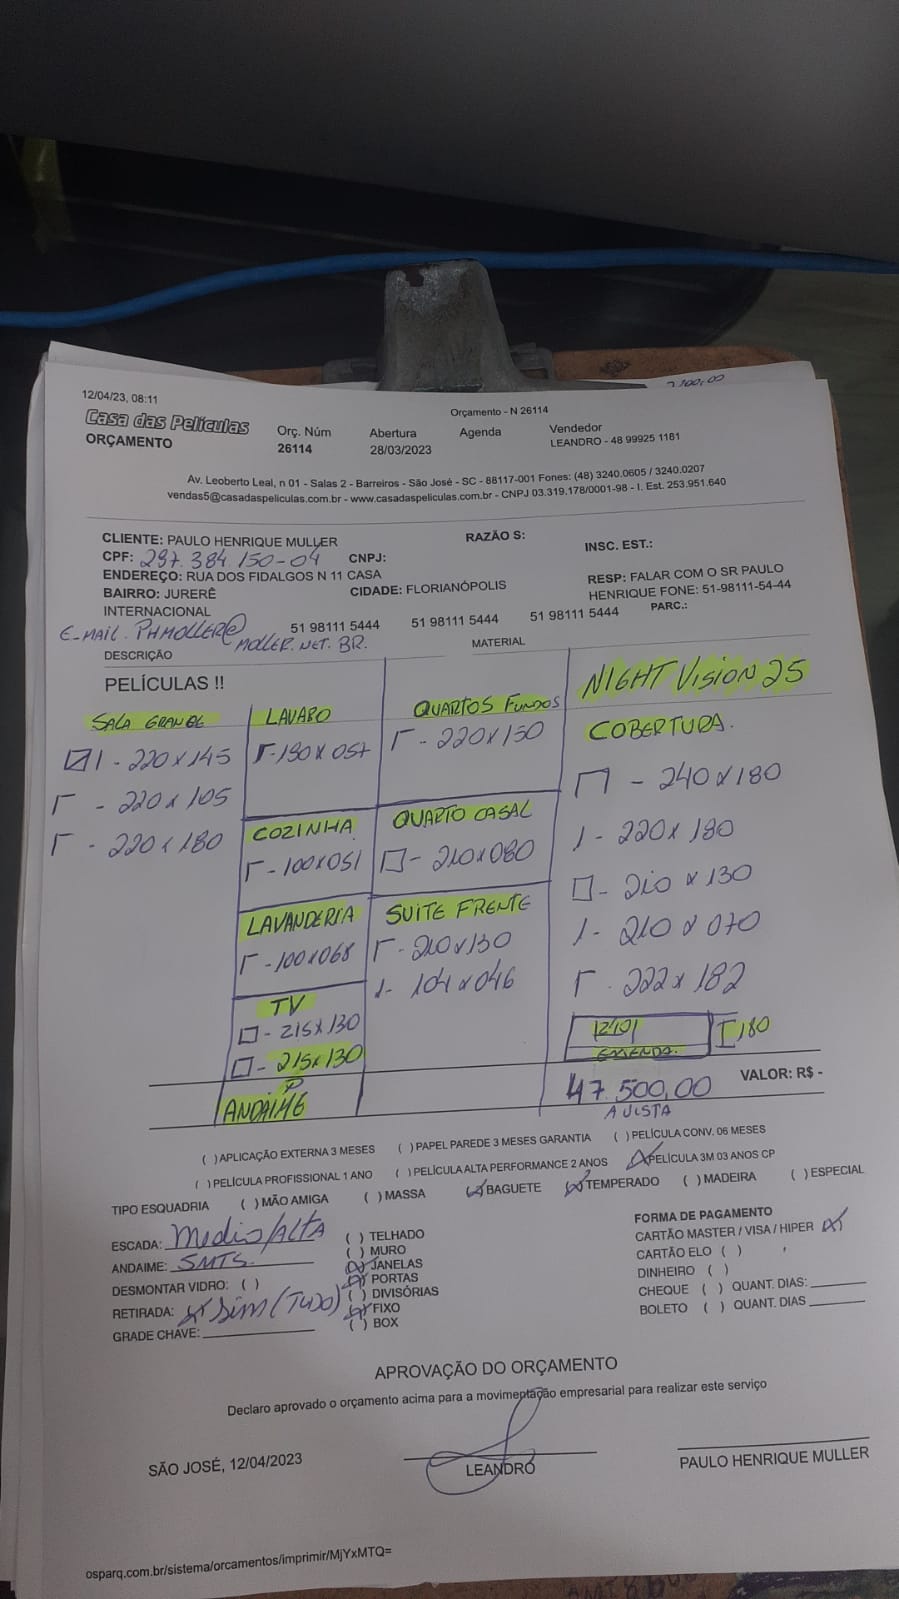 7.100,00
12/04/23, 08:11
Orçamento - N 26114
Casa das Películas
ORÇAMENTO
Orç. Núm
26114
Abertura
28/03/2023
Agenda
Vendedor
LEANDRO - 48 99925 1181
Av. Leoberto Leal, n 01 - Salas 2 - Barreiros - São José - SC - 88117-001 Fones: (48) 3240.0605 / 3240.0207
vendas5@casadaspeliculas.com.br - www.casadaspeliculas.com.br - CNPJ 03.319.178/0001-98 - I. Est. 253.951.640
CLIENTE: PAULO HENRIQUE MULLER
RAZÃO S:
INSC. EST.:
CPF: 297.384.150-04 CNPJ:
ENDEREÇO: RUA DOS FIDALGOS N 11 CASA
BAIRRO: JURERÊ
INTERNACIONAL
CIDADE: FLORIANÓPOLIS
RESP: FALAR COM O SR PAULO
HENRIQUE FONE: 51-98111-54-44
PARC.:
51 98111 5444 51 98111 5444 51 98111 5444
E-MAIL. PHMOLLER@
MOLLER.NET.BR.
DESCRIÇÃO
MATERIAL
PELÍCULAS !!
SALA GRANDE
1 - 220 x 145
- 220 x 105
- 220 x 180
LAVABO
- 190 x 057
COZINHA
- 100 x 051
LAVANDERIA
- 100 x 068
TV
- 215 x 130
- 215 x 130
ANDAIME
QUARTOS FUNDOS
- 220 x 150
QUARTO CASAL
- 210 x 080
SUITE FRENTE
- 210 x 130
1- 104 x 046
NIGHT VISION 25
COBERTURA.
- 240 x 180
1 - 220 x 180
- 210 x 130
1 - 210 x 070
- 222 x 182
EMENDA.
180
47.500,00
A VISTA
VALOR: R$ -
( ) APLICAÇÃO EXTERNA 3 MESES ( ) PAPEL PAREDE 3 MESES GARANTIA ( ) PELÍCULA CONV. 06 MESES
( ) PELÍCULA PROFISSIONAL 1 ANO ( ) PELÍCULA ALTA PERFORMANCE 2 ANOS (X) PELÍCULA 3M 03 ANOS CP
TIPO ESQUADRIA ( ) MÃO AMIGA ( ) MASSA (X) BAGUETE (X) TEMPERADO ( ) MADEIRA ( ) ESPECIAL
ESCADA: Medio/ALTA
ANDAIME: 5MTS.
DESMONTAR VIDRO: ( )
RETIRADA: (X) Sim (TUDO)
GRADE CHAVE:
( ) TELHADO
( ) MURO
(X) JANELAS
(X) PORTAS
( ) DIVISÓRIAS
(X) FIXO
( ) BOX
FORMA DE PAGAMENTO
CARTÃO MASTER / VISA / HIPER (X)
CARTÃO ELO ( )
DINHEIRO ( )
CHEQUE ( ) QUANT. DIAS:
BOLETO ( ) QUANT. DIAS
APROVAÇÃO DO ORÇAMENTO
Declaro aprovado o orçamento acima para a movimentação empresarial para realizar este serviço
SÃO JOSÉ, 12/04/2023
LEANDRO
PAULO HENRIQUE MULLER
osparq.com.br/sistema/orcamentos/imprimir/MjYxMTQ=